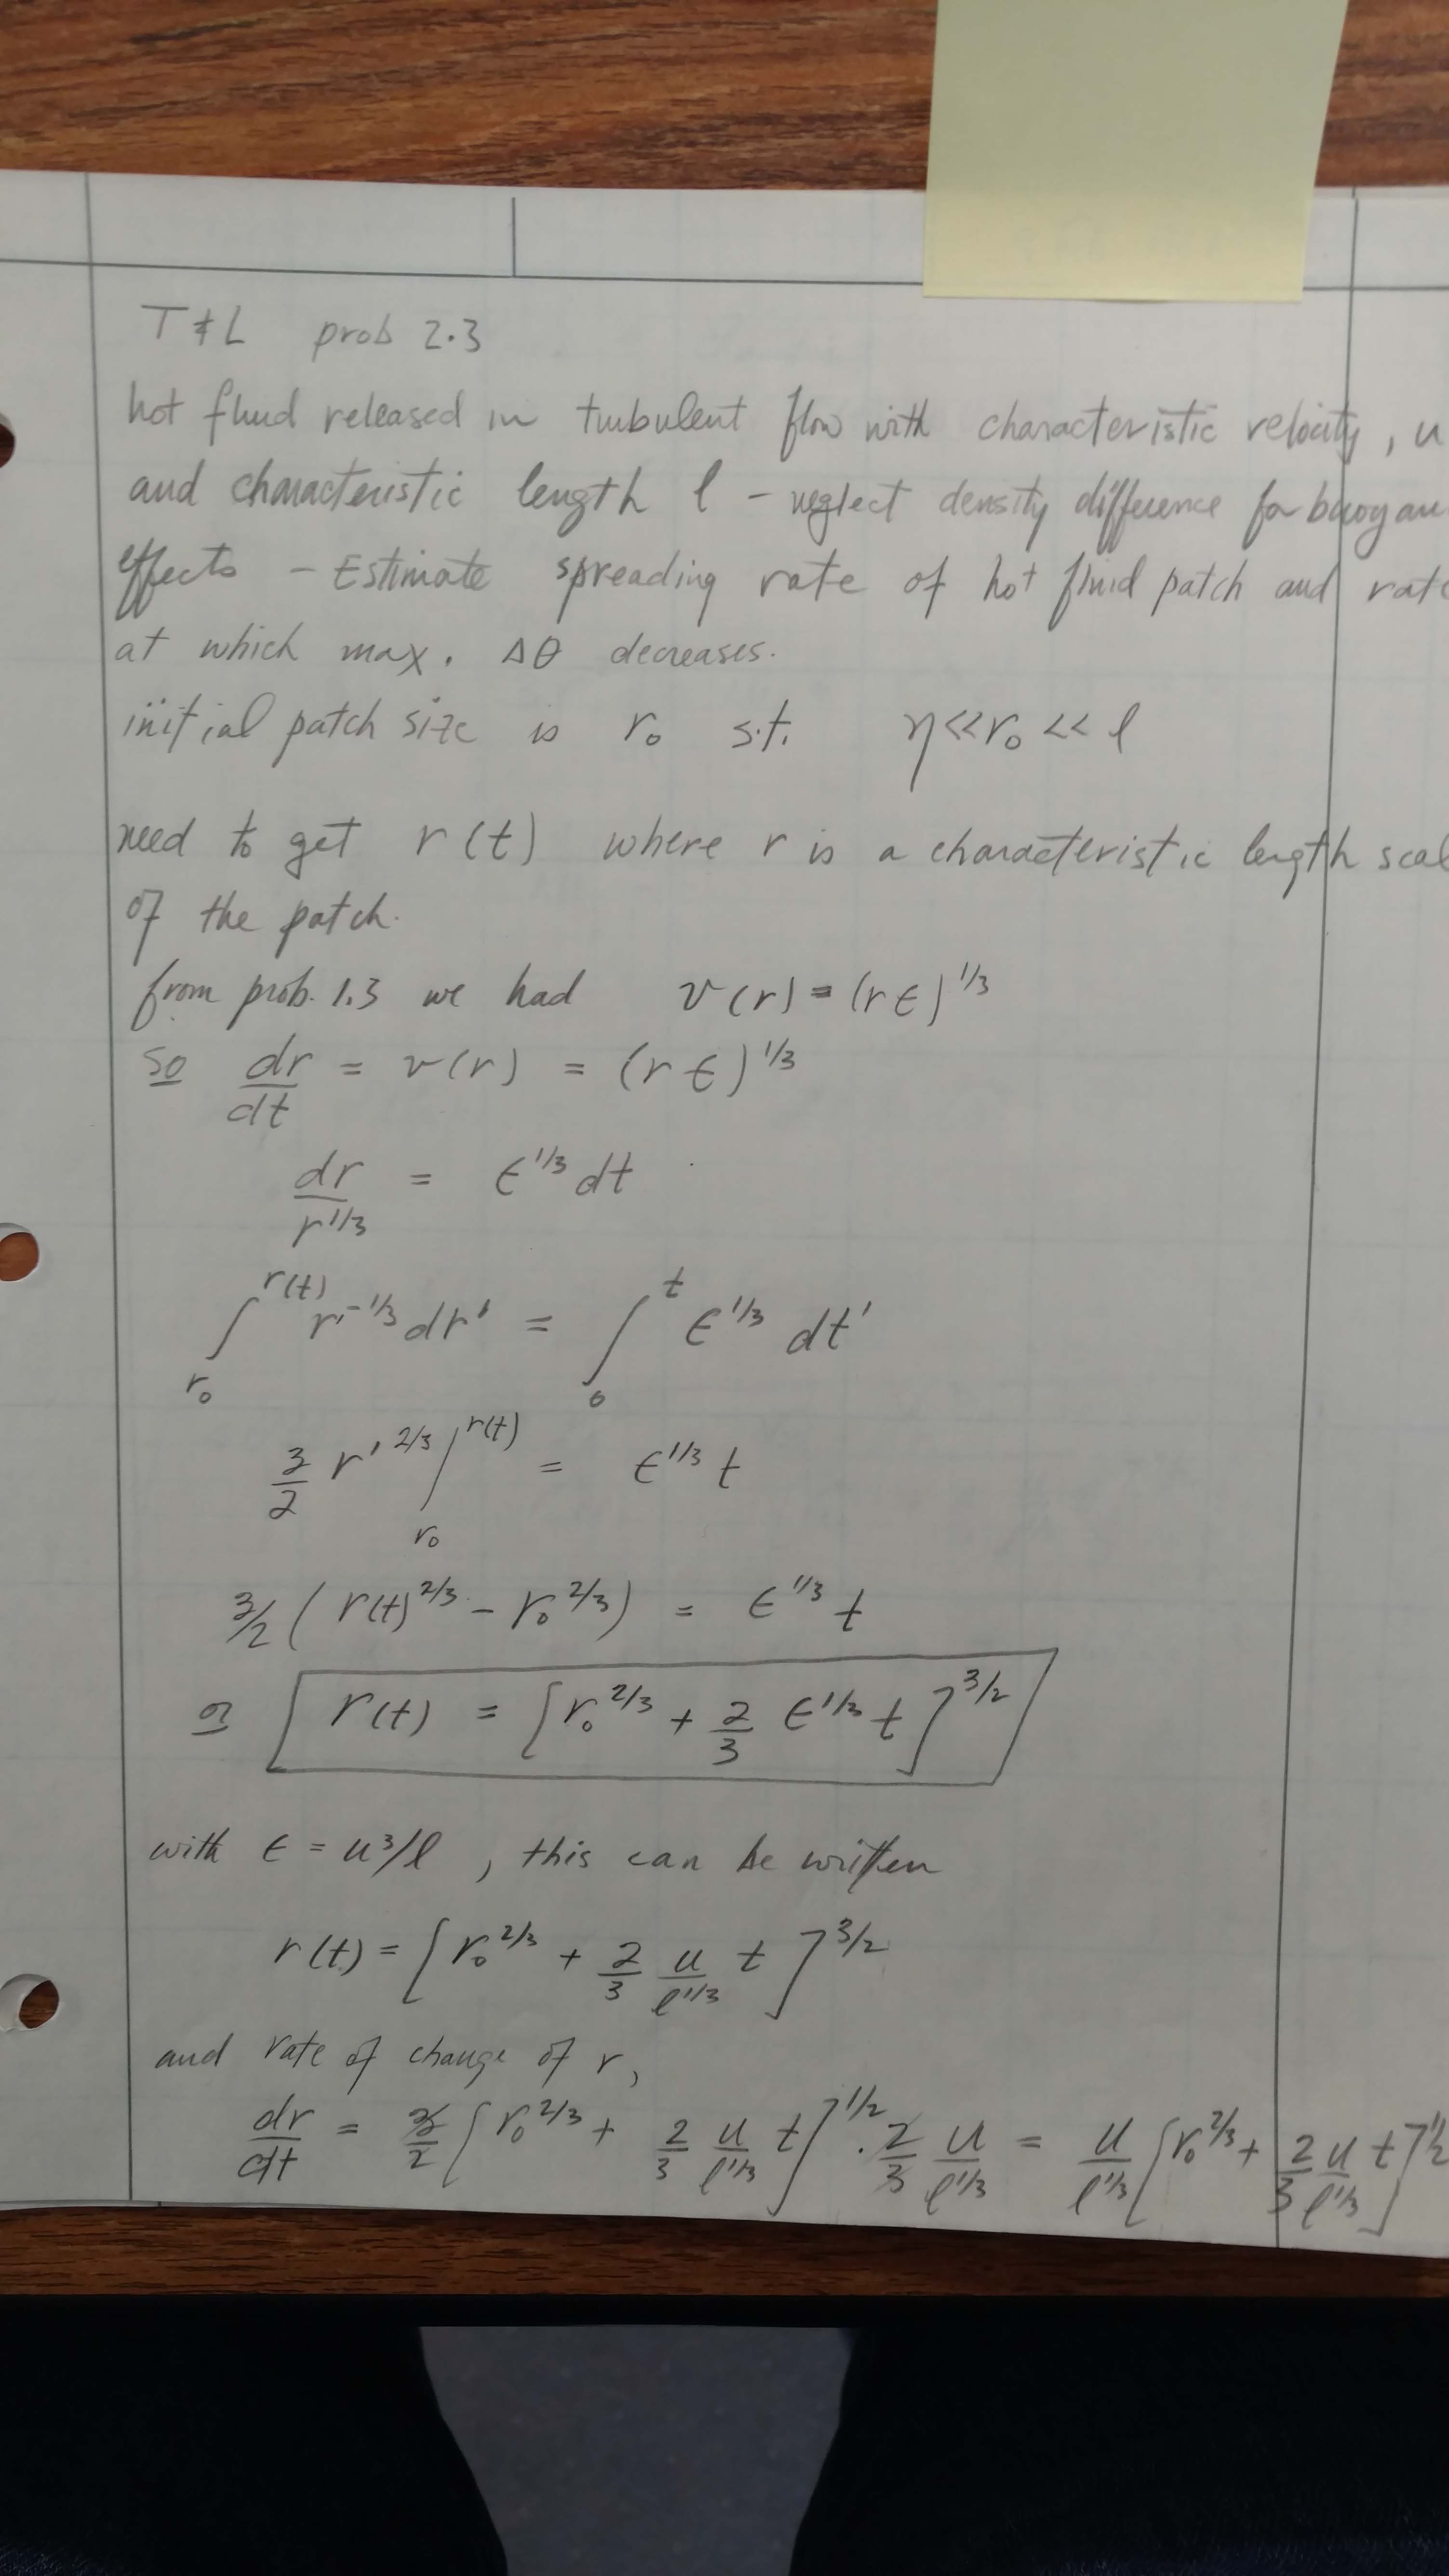 T & L prob 2.3
hot fluid released in turbulent flow with characteristic velocity, u
and characteristic length l - neglect density difference for buoyan
effects - Estimate spreading rate of hot fluid patch and rate
at which max. Δθ decreases.
initial patch size is r₀ s.t. η<<r₀ << l
need to get r(t) where r is a characteristic length scal
of the patch.
from prob. 1.3 we had v(r) = (rε)^1/3
so dr/dt = v(r) = (rε)^1/3
dr/r^1/3 = ε^1/3 dt
∫_r₀^r(t) r'^-1/3 dr' = ∫_0^t ε^1/3 dt'
3/2 r'^2/3 |_r₀^r(t) = ε^1/3 t
3/2 (r(t)^2/3 - r₀^2/3) = ε^1/3 t
or r(t) = [r₀^2/3 + 2/3 ε^1/3 t]^3/2
with ε = u³/l, this can be written
r(t) = [r₀^2/3 + 2/3 u/l^1/3 t]^3/2
and rate of change of r,
dr/dt = 3/2 [r₀^2/3 + 2/3 u/l^1/3 t]^1/2 · 2/3 u/l^1/3 = u/l^1/3 [r₀^2/3 + 2/3 u/l^1/3 t]^1/2